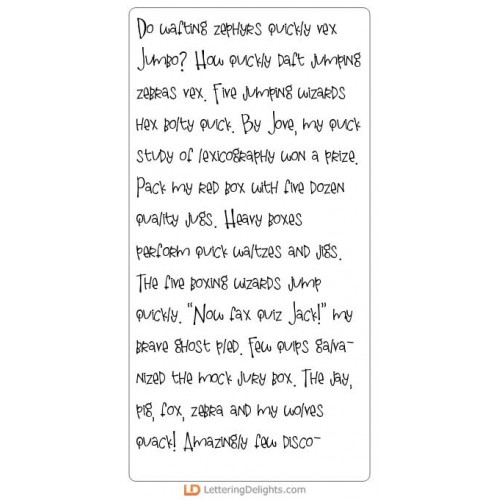 Do wafting zephyrs quickly vex
Jumbo? How quickly daft jumping
zebras vex. Five jumping wizards
hex bolty quick. By Jove, my quick
study of lexicography won a prize.
Pack my red box with five dozen
quality jugs. Heavy boxes
perform quick waltzes and jigs.
The five boxing wizards jump
quickly. "Now fax quiz Jack!" my
brave ghost pled. Few quips galva-
nized the mock jury box. The jay,
pig, fox, zebra and my wolves
quack! Amazingly few disco-
LD LetteringDelights.com